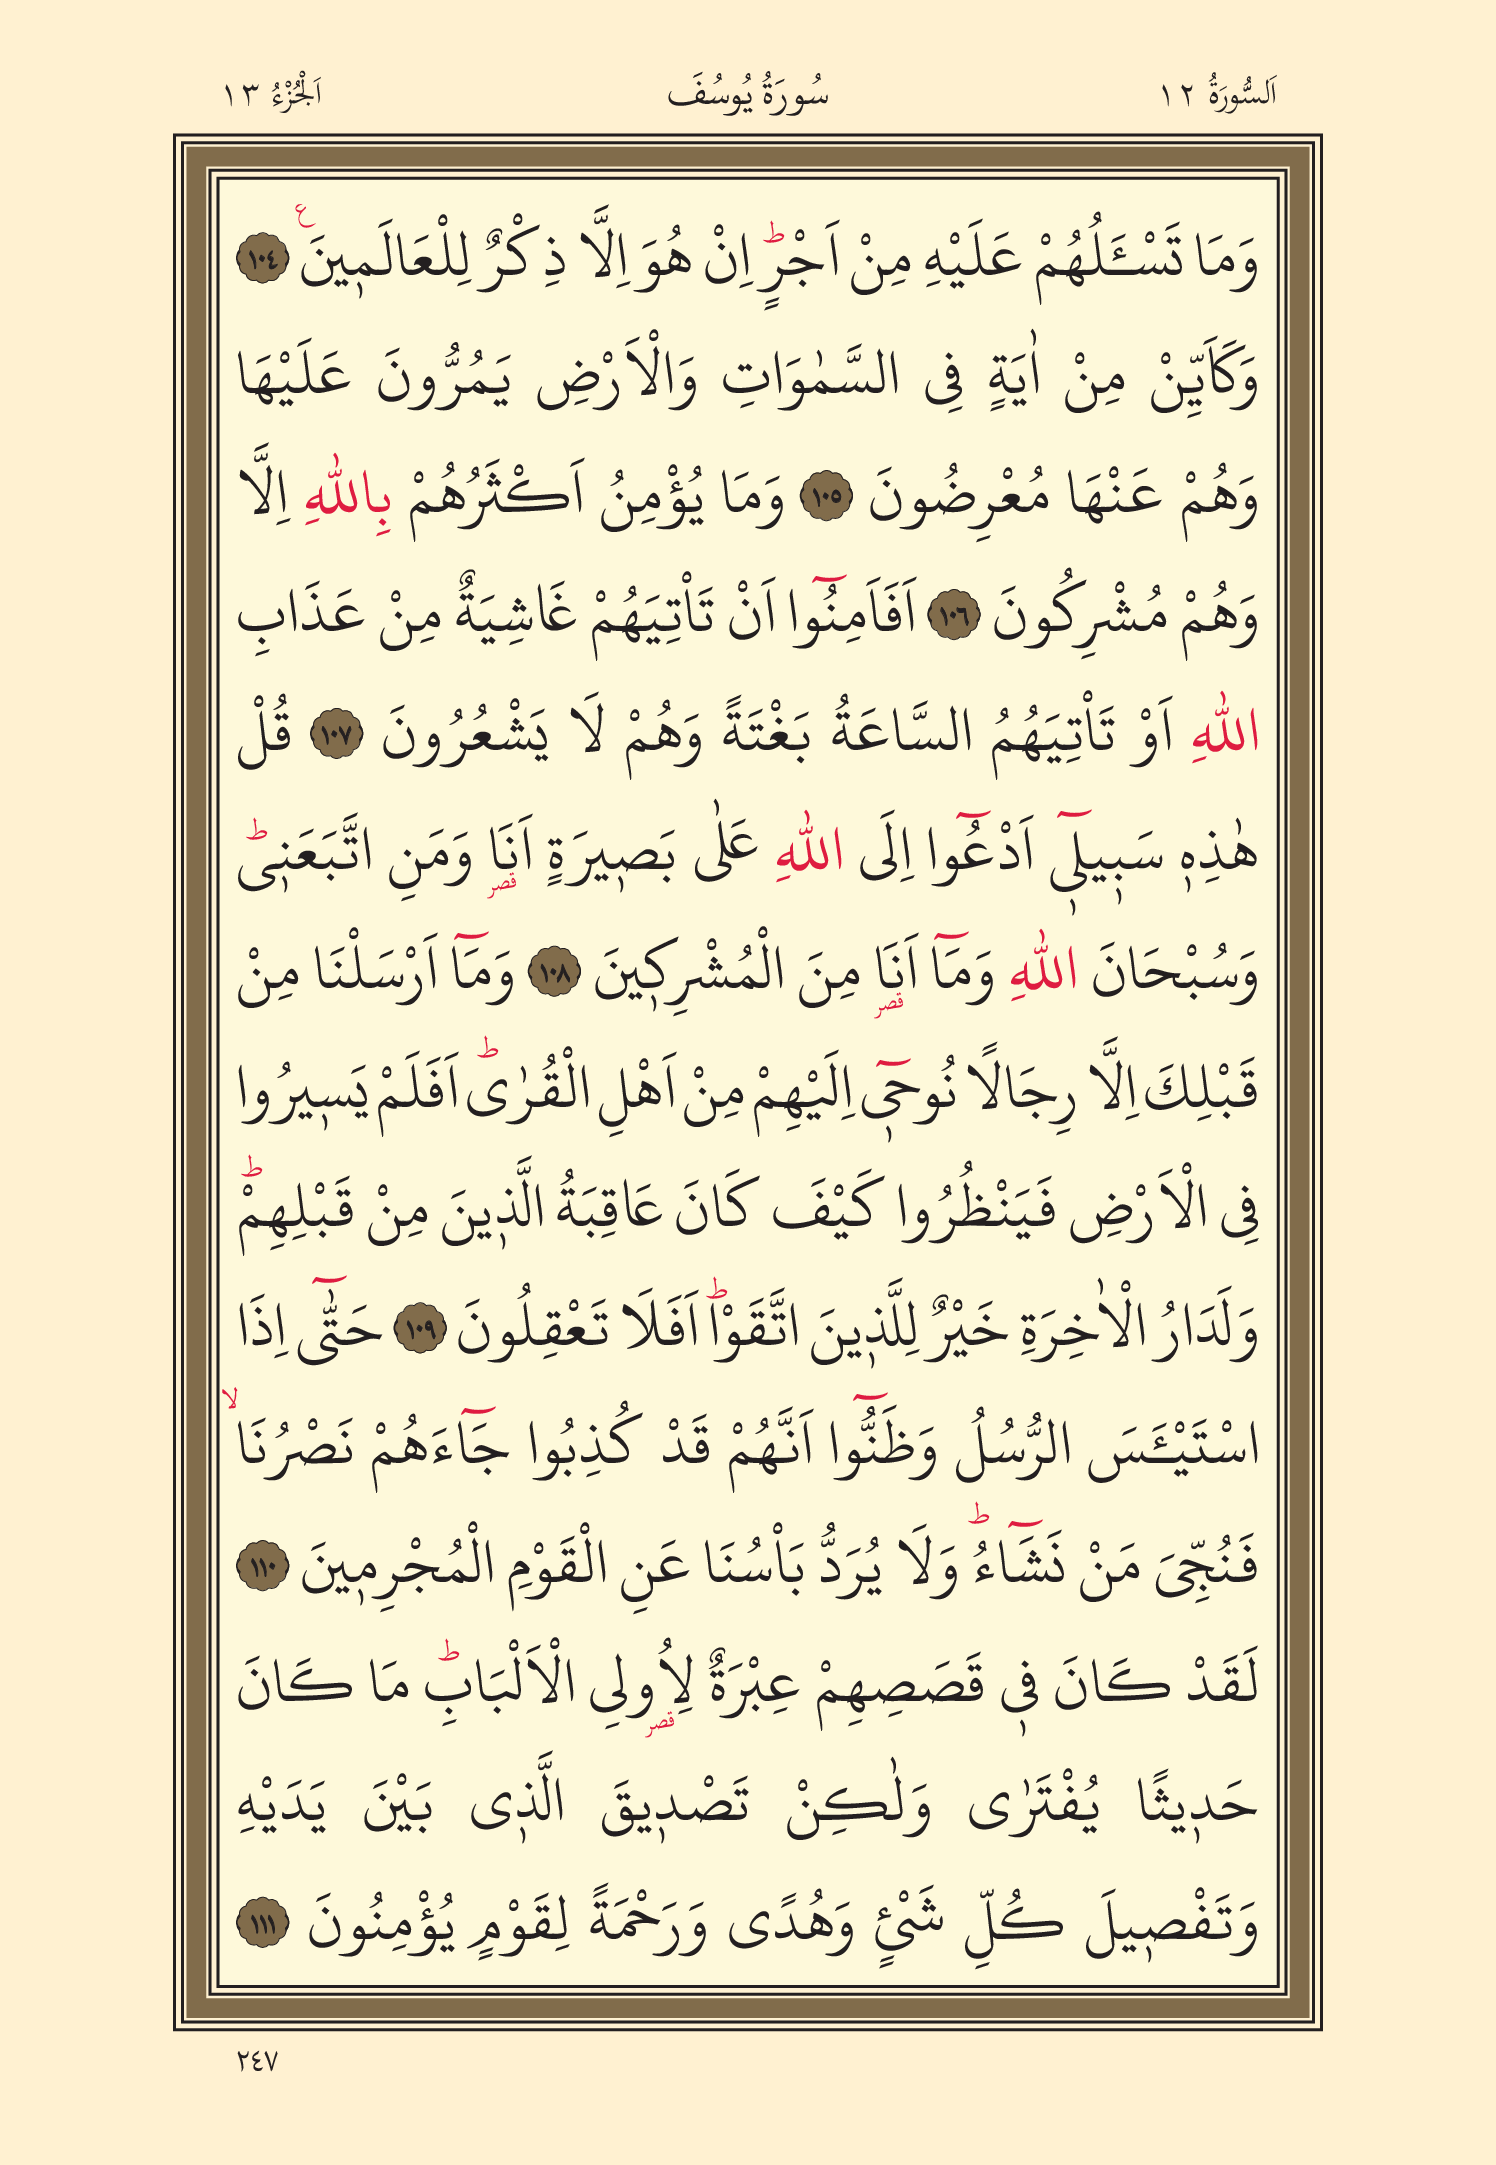 اَلسُّورَةُ ١٢ سُورَةُ يُوسُفَ اَلْجُزْءُ ١٣
وَمَا تَسْـَٔلُهُمْ عَلَيْهِ مِنْ اَجْرٍۜ اِنْ هُوَ اِلَّا ذِكْرٌ لِلْعَالَم۪ينَ۟ ١٠٤
وَكَاَيِّنْ مِنْ اٰيَةٍ فِى السَّمٰوَاتِ وَالْاَرْضِ يَمُرُّونَ عَلَيْهَا
وَهُمْ عَنْهَا مُعْرِضُونَ ١٠٥ وَمَا يُؤْمِنُ اَكْثَرُهُمْ بِاللّٰهِ اِلَّا
وَهُمْ مُشْرِكُونَ ١٠٦ اَفَاَمِنُٓوا اَنْ تَاْتِيَهُمْ غَاشِيَةٌ مِنْ عَذَابِ
اللّٰهِ اَوْ تَاْتِيَهُمُ السَّاعَةُ بَغْتَةً وَهُمْ لَا يَشْعُرُونَ ١٠٧ قُلْ
هٰذِه۪ سَب۪يل۪ٓي اَدْعُٓوا اِلَى اللّٰهِ عَلٰى بَص۪يرَةٍ اَنَا۬ وَمَنِ اتَّبَعَن۪ىۜ
وَسُبْحَانَ اللّٰهِ وَمَٓا اَنَا۬ مِنَ الْمُشْرِك۪ينَ ١٠٨ وَمَٓا اَرْسَلْنَا مِنْ
قَبْلِكَ اِلَّا رِجَالًا نُوح۪ٓى اِلَيْهِمْ مِنْ اَهْلِ الْقُرٰىۜ اَفَلَمْ يَس۪يرُوا
فِى الْاَرْضِ فَيَنْظُرُوا كَيْفَ كَانَ عَاقِبَةُ الَّذ۪ينَ مِنْ قَبْلِهِمْۜ
وَلَدَارُ الْاٰخِرَةِ خَيْرٌ لِلَّذ۪ينَ اتَّقَوْاۜ اَفَلَا تَعْقِلُونَ ١٠٩ حَتّٰٓى اِذَا
اسْتَيْـَٔسَ الرُّسُلُ وَظَنُّٓوا اَنَّهُمْ قَدْ كُذِبُوا جَٓاءَهُمْ نَصْرُنَاۙ
فَنُجِّىَ مَنْ نَشَٓاءُۜ وَلَا يُرَدُّ بَاْسُنَا عَنِ الْقَوْمِ الْمُجْرِم۪ينَ ١١٠
لَقَدْ كَانَ ف۪ي قَصَصِهِمْ عِبْرَةٌ لِاُو۬لِي الْاَلْبَابِۜ مَا كَانَ
حَد۪يثًا يُفْتَرٰى وَلٰكِنْ تَصْد۪يقَ الَّذ۪ى بَيْنَ يَدَيْهِ
وَتَفْص۪يلَ كُلِّ شَيْءٍ وَهُدًى وَرَحْمَةً لِقَوْمٍ يُؤْمِنُونَ ١١١
٢٤٧